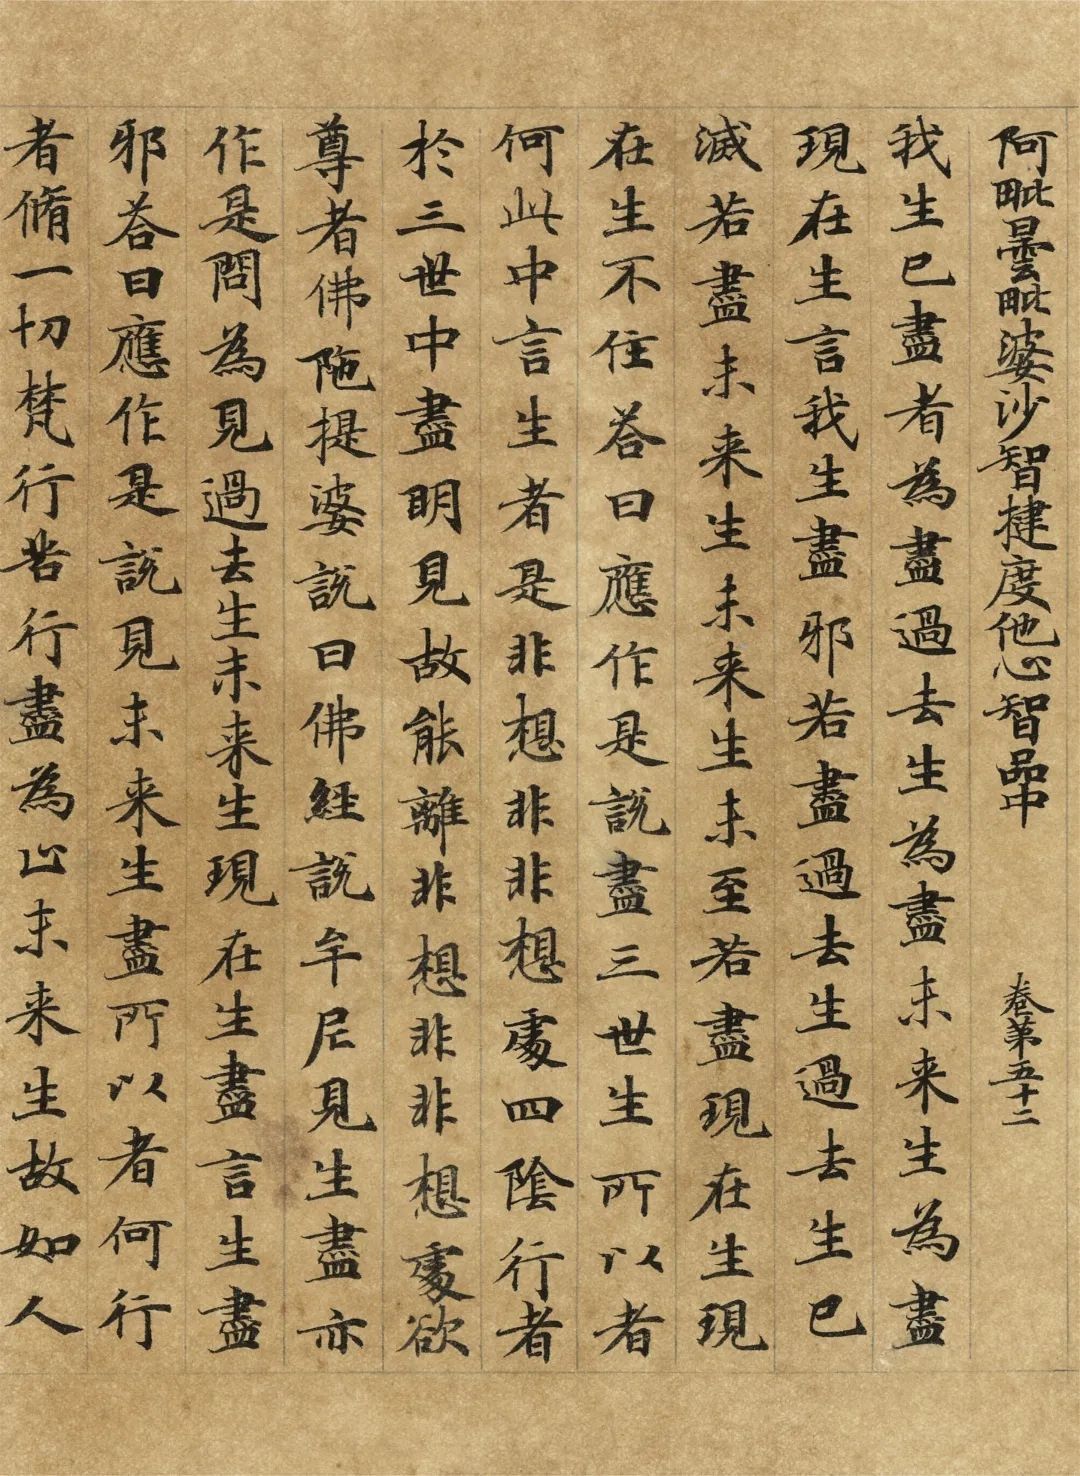 阿毗曇毗婆沙智揵度他心智品中 卷第五十二
我生已盡者為盡過去生為盡未来生為盡
現在生言我生盡邪若盡過去生過去生已
滅若盡未来生未来生未至若盡現在生現
在生不住荅曰應作是説盡三世生所以者
何此中言生者是非想非非想處四陰行者
於三世中盡明見故能離非想非非想處欲
尊者佛陁提婆説曰佛經説牟尼見生盡亦
作是問為見過去生未来生現在生盡言生盡
邪荅曰應作是説見未来生盡所以者何行
者脩一切梵行苦行盡為止未来生故如人